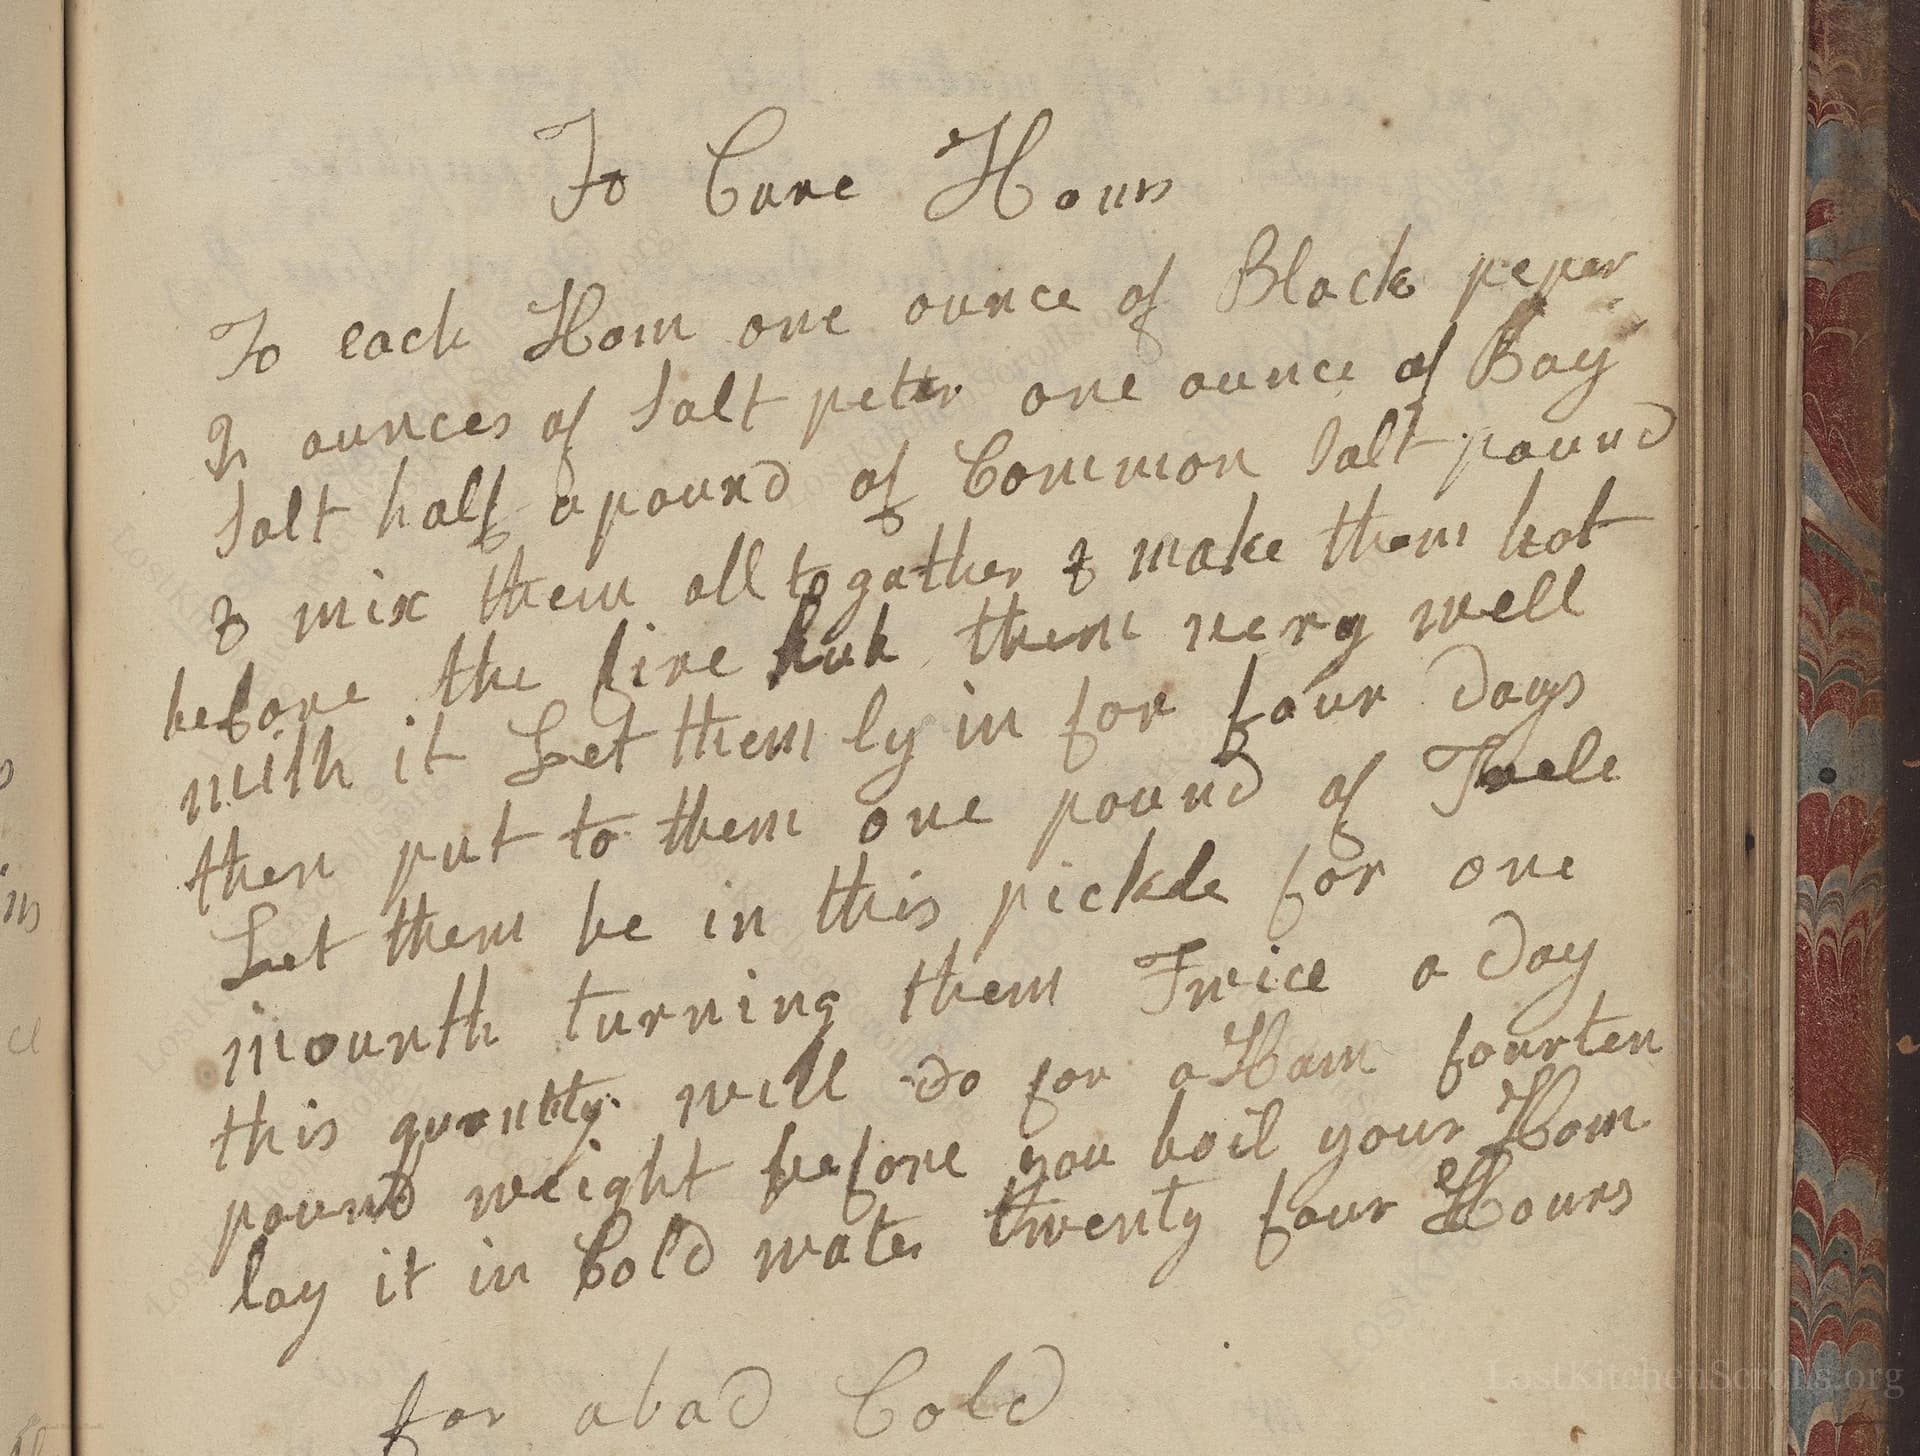 To Cure Hams
To each Ham one ounce of Black peper
2 ounces of Salt peter one ounce of Bay
Salt half a pound of Common Salt pound
& mix them all togather & make them hot
before the fire Rub them very well
with it Let them ly in for four days
then put to them one pound of Treele
Let them be in this pickle for one
mounth turning them Twice a day
this quantity will do for a Ham fourten
pound weight before you boil your Ham
lay it in Cold water twenty four Hours
for a bad Cold
LostKitchenScrolls.org